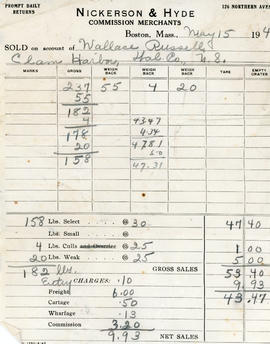 PROMPT DAILY RETURNS
126 NORTHERN AVE
NICKERSON & HYDE
COMMISSION MERCHANTS
Boston, Mass., May 15 194
SOLD on account of Wallace Russell
Clam Harbor, Hal. Co. N.S.
MARKS GROSS WEIGH BACK WEIGH BACK TARE EMPTY CRATES
237 55 4 20
55
182
4 4347
178 434
20 4781
158 50
47.31
158 Lbs. Select @ 30 47 40
Lbs. Small @
4 Lbs. Culls and Ovesize @ 25 1 00
20 Lbs. Weak @ 25 5 00
182 lbs. GROSS SALES 53 40
Entry CHARGES: .10 9.93
Freight 6.00 43.47
Cartage .50
Wharfage .13
Commission 3.20
9.93 NET SALES